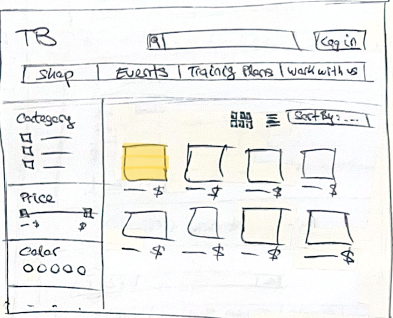 TB
Log in
Shop | Events | Training Plans | Work with us
Category
Sort By: ....
Price
$ $
Color
$ $ $ $
$ $ $ $